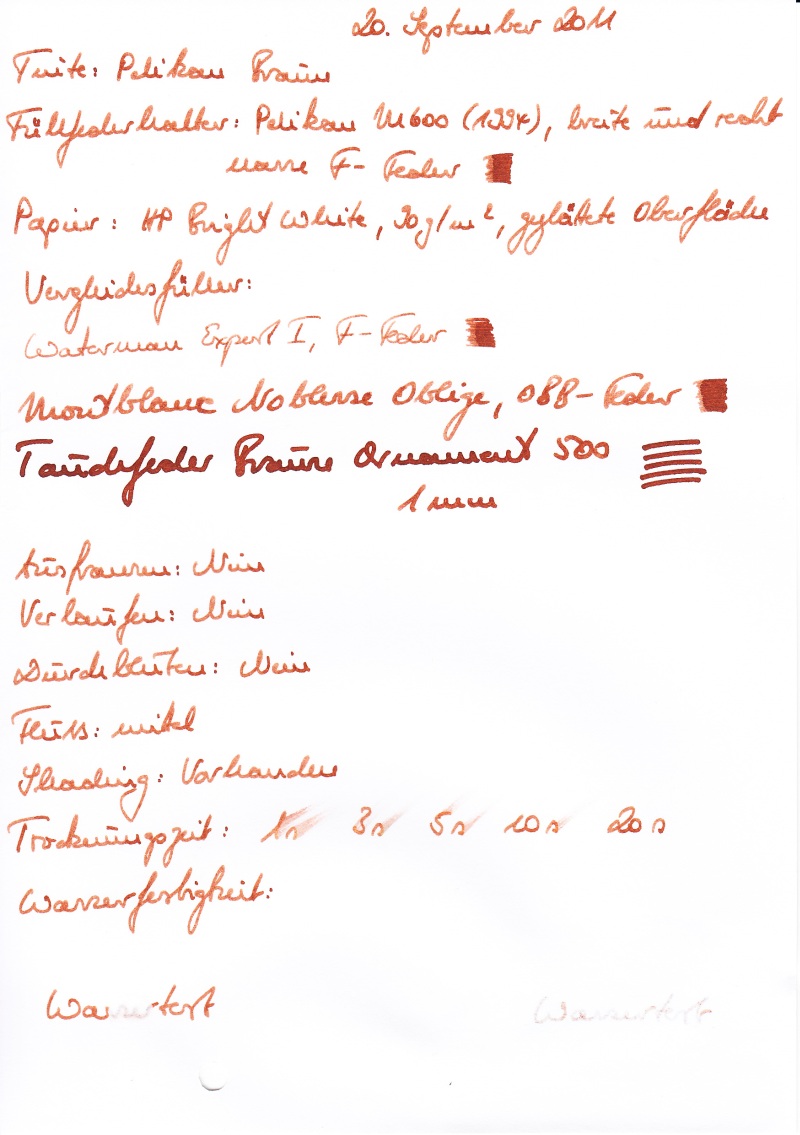 20. September 2011
Tinte: Pelikan Braun
Füllfederhalter: Pelikan M600 (1997), breite und recht
nasse F-Feder
Papier: HP Bright White, 90g/m², geglättete Oberfläche
Vergleichsfüller:
Waterman Expert I, F-Feder
Montblanc Noblesse Oblige, OBB-Feder
Tauchfeder Brause Ornament 500
1 mm
Ausfransen: Nein
Verlaufen: Nein
Durchbluten: Nein
Fluss: mittel
Shading: Vorhanden
Trocknungszeit: 1s 3s 5s 10s 20s
Wasserfestigkeit:
Wassertest Wassertest